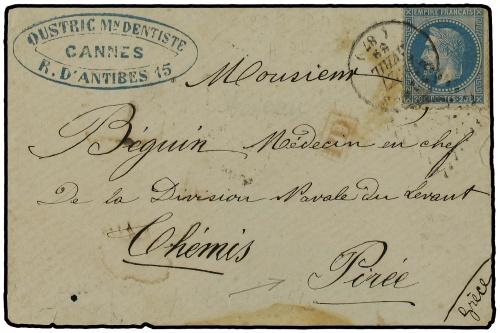 OUSTRIC Mn DENTISTE
CANNES
R. D'ANTIBES 15
EMPIRE FRANÇAIS
Monsieur
PD
Béguin Médecin en chef
De la Division Navale du Levant
Thémis
Pirée
Grèce